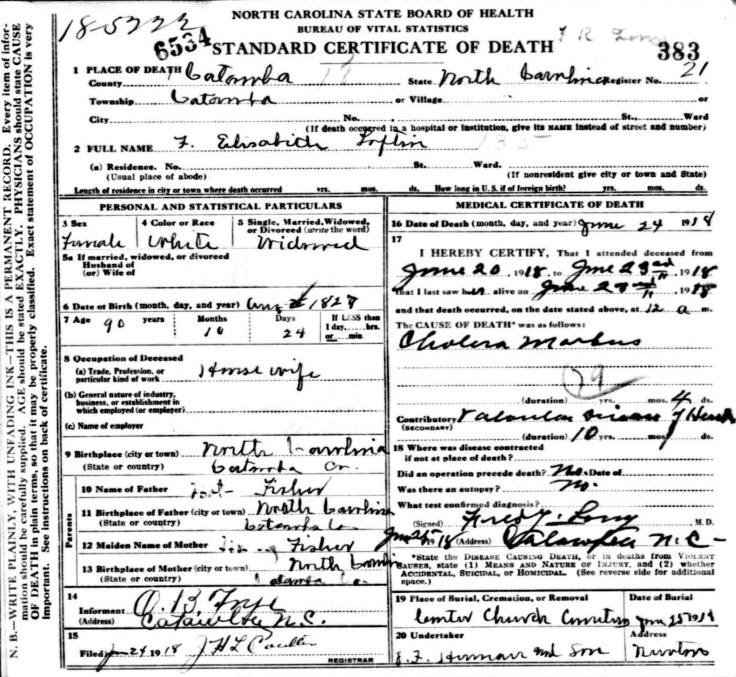 NORTH CAROLINA STATE BOARD OF HEALTH
BUREAU OF VITAL STATISTICS
6534 STANDARD CERTIFICATE OF DEATH 383
1 PLACE OF DEATH Catawba
County State North Carolina Register No. 21
Township Catawba or Village or
City No. St., Ward
(If death occurred in a hospital or institution, give its NAME instead of street and number)
2 FULL NAME F. Elisabeth Loflin
(a) Residence. No. St. Ward.
(Usual place of abode) (If nonresident give city or town and State)
Length of residence in city or town where death occurred yrs. mos. ds. How long in U. S. if of foreign birth? yrs. mos. ds.
PERSONAL AND STATISTICAL PARTICULARS
3 Sex 4 Color or Race 5 Single, Married, Widowed,
or Divorced (write the word)
Female White Widowed
5a If married, widowed, or divorced
Husband of
(or) Wife of
6 Date of Birth (month, day, and year) 1828
7 Age 90 years Months 10 Days 24 If LESS than
1 day, hrs.
or min.
8 Occupation of Deceased
(a) Trade, Profession, or
particular kind of work House wife
(b) General nature of industry,
business, or establishment in
which employed (or employer)
(c) Name of employer
9 Birthplace (city or town) North Carolina
(State or country) Catawba Co.
Parents
10 Name of Father Fisher
11 Birthplace of Father (city or town) North Carolina
(State or country) Catawba Co
12 Maiden Name of Mother Fisher
13 Birthplace of Mother (city or town) North Carolina
(State or country) Catawba Co.
14
Informant
(Address) Catawba N.C.
15
Filed June 24 1918 J H L Coulter
REGISTRAR
MEDICAL CERTIFICATE OF DEATH
16 Date of Death (month, day, and year) June 24 1918
17
I HEREBY CERTIFY, That I attended deceased from
June 20, 1918, to June 23rd, 1918
that I last saw her alive on June 23rd, 1918
and that death occurred, on the date stated above, at 12 a m.
The CAUSE OF DEATH* was as follows:
Cholera Morbus
(duration) yrs. mos. 4 ds.
Contributory Valvular disease of Heart
(SECONDARY)
(duration) 10 yrs. mos. ds.
18 Where was disease contracted
if not at place of death?
Did an operation precede death? No. Date of
Was there an autopsy? No.
What test confirmed diagnosis?
(Signed) Fred Y. Long M.D.
18 (Address) Catawba N.C.
*State the DISEASE CAUSING DEATH, or in deaths from VIOLENT
CAUSES, state (1) MEANS AND NATURE OF INJURY, and (2) whether
ACCIDENTAL, SUICIDAL, or HOMICIDAL. (See reverse side for additional
space.)
19 Place of Burial, Cremation, or Removal Date of Burial
Center Church Cemetery June 25 1918
20 Undertaker Address
and Son Newton
N. B.—WRITE PLAINLY, WITH UNFADING INK—THIS IS A PERMANENT RECORD. Every item of infor-
mation should be carefully supplied. AGE should be stated EXACTLY. PHYSICIANS should state CAUSE
OF DEATH in plain terms, so that it may be properly classified. Exact statement of OCCUPATION is very
important. See instructions on back of certificate.